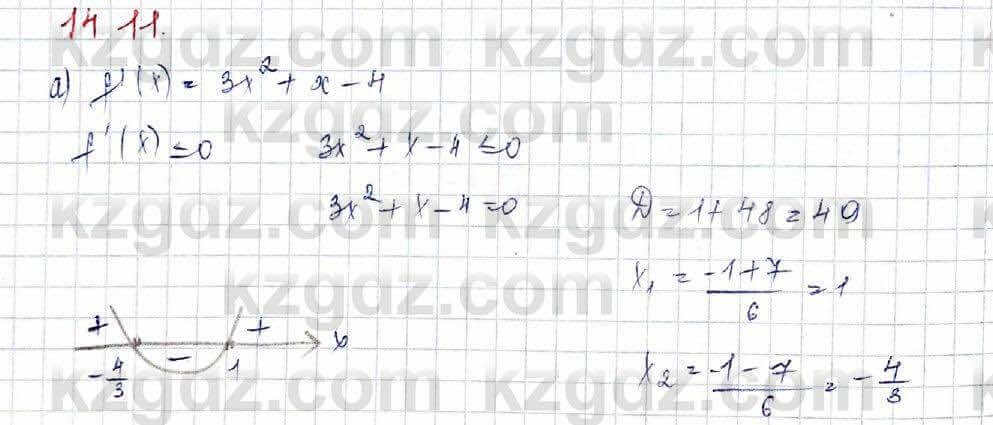 14.11.
а) f'(x) = 3x² + x – 4
f'(x) ≤ 0 3x² + x – 4 ≤ 0
3x² + x – 4 = 0 D = 1 + 48 = 49
x₁ = (-1+7)/6 = 1
+ – + x
-4/3 1
x₂ = (-1-7)/6 = -4/3
kzgdz.com kzgdz.com
kzgdz.com
kzgdz.com kzgdz.com
kzgdz.com
kzgdz.com kzgdz.com